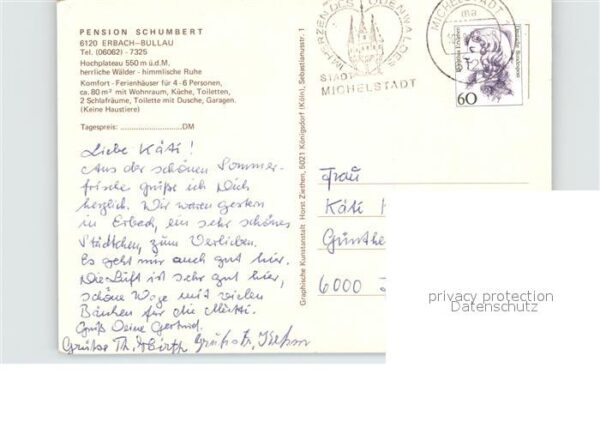 PENSION SCHUMBERT
6120 ERBACH-BULLAU
Tel. (06062) - 7325
Hochplateau 550 m ü.d.M.
herrliche Wälder - himmlische Ruhe
Komfort - Ferienhäuser für 4-6 Personen,
ca. 80 m² mit Wohnraum, Küche, Toiletten,
2 Schlafräume, Toilette mit Dusche, Garagen.
(Keine Haustiere)
Tagespreis: ........................DM
Liebe Käti!
Aus der schönen Sommer-
frische grüße ich Dich
herzlich. Wir waren gestern
in Erbach, ein sehr schönes
Städtchen, zum Verlieben.
Es geht mir auch gut hier.
Die Luft ist sehr gut hier,
schöne Wege mit vielen
Bänken für die Mutti.
Gruß Deine Gertrud.
Grüße Th.
Graphische Kunstanstalt Horst Ziethen, 5021 Königsdorf (Köln), Sebastianusstr. 1
IM HERZEN DES ODENWALDES
STADT
MICHELSTADT
MICHELSTADT 1
60
Frau
Käti
Günthe
6000
privacy protection
Datenschutz